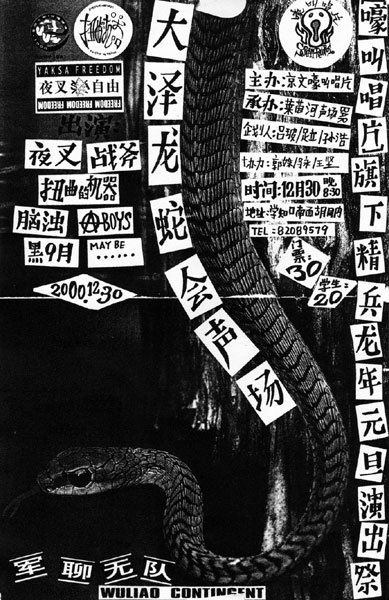 YAKSA FREEDOM
夜叉 自由
FREEDOM FREEDOM FREEDOM
出演:
夜叉 战斧
扭曲的机器
脑浊 A BOYS
黑9月 MAY BE......
2000.12.30
大泽龙蛇会声场
主办:京文嚎叫唱片
承办:莱茵河声场
企划人:
协力:
时间:12月30晚8:30
地址:学知口南西胡同内
TEL:82089579
门票:30
学生:20
嚎叫唱片旗下精兵龙年元旦演出祭
军聊无队
WULIAO CONTINGENT